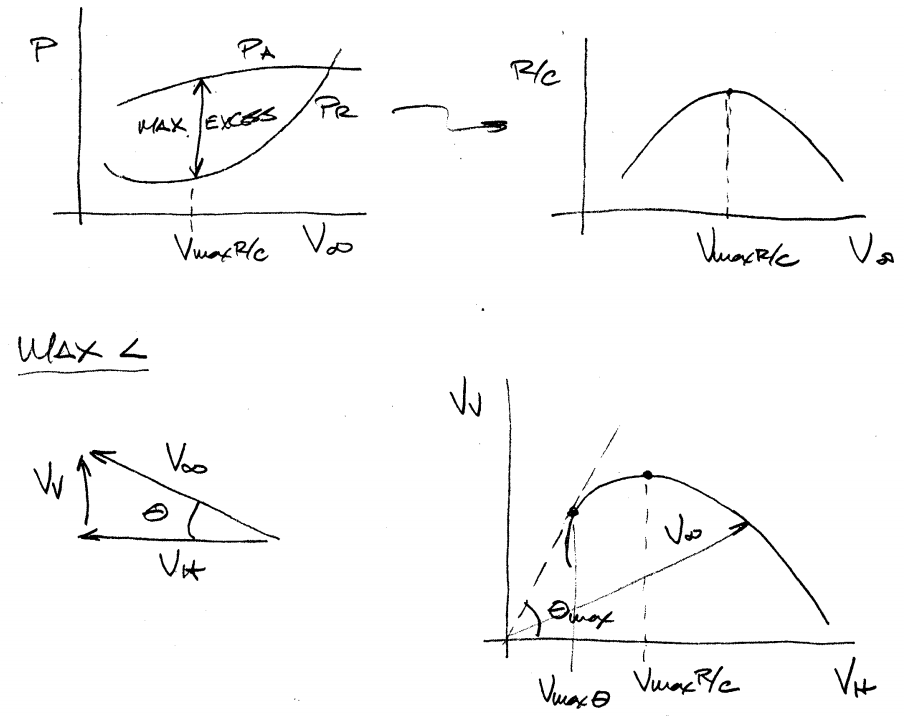 P
P_A
MAX. EXCESS
P_R
V_maxR/C
V_∞
R/C
V_maxR/C
V_∞
MAX ∠
V_V
V_∞
θ
V_H
V_V
V_∞
θ_max
V_maxθ
V_maxR/C
V_H